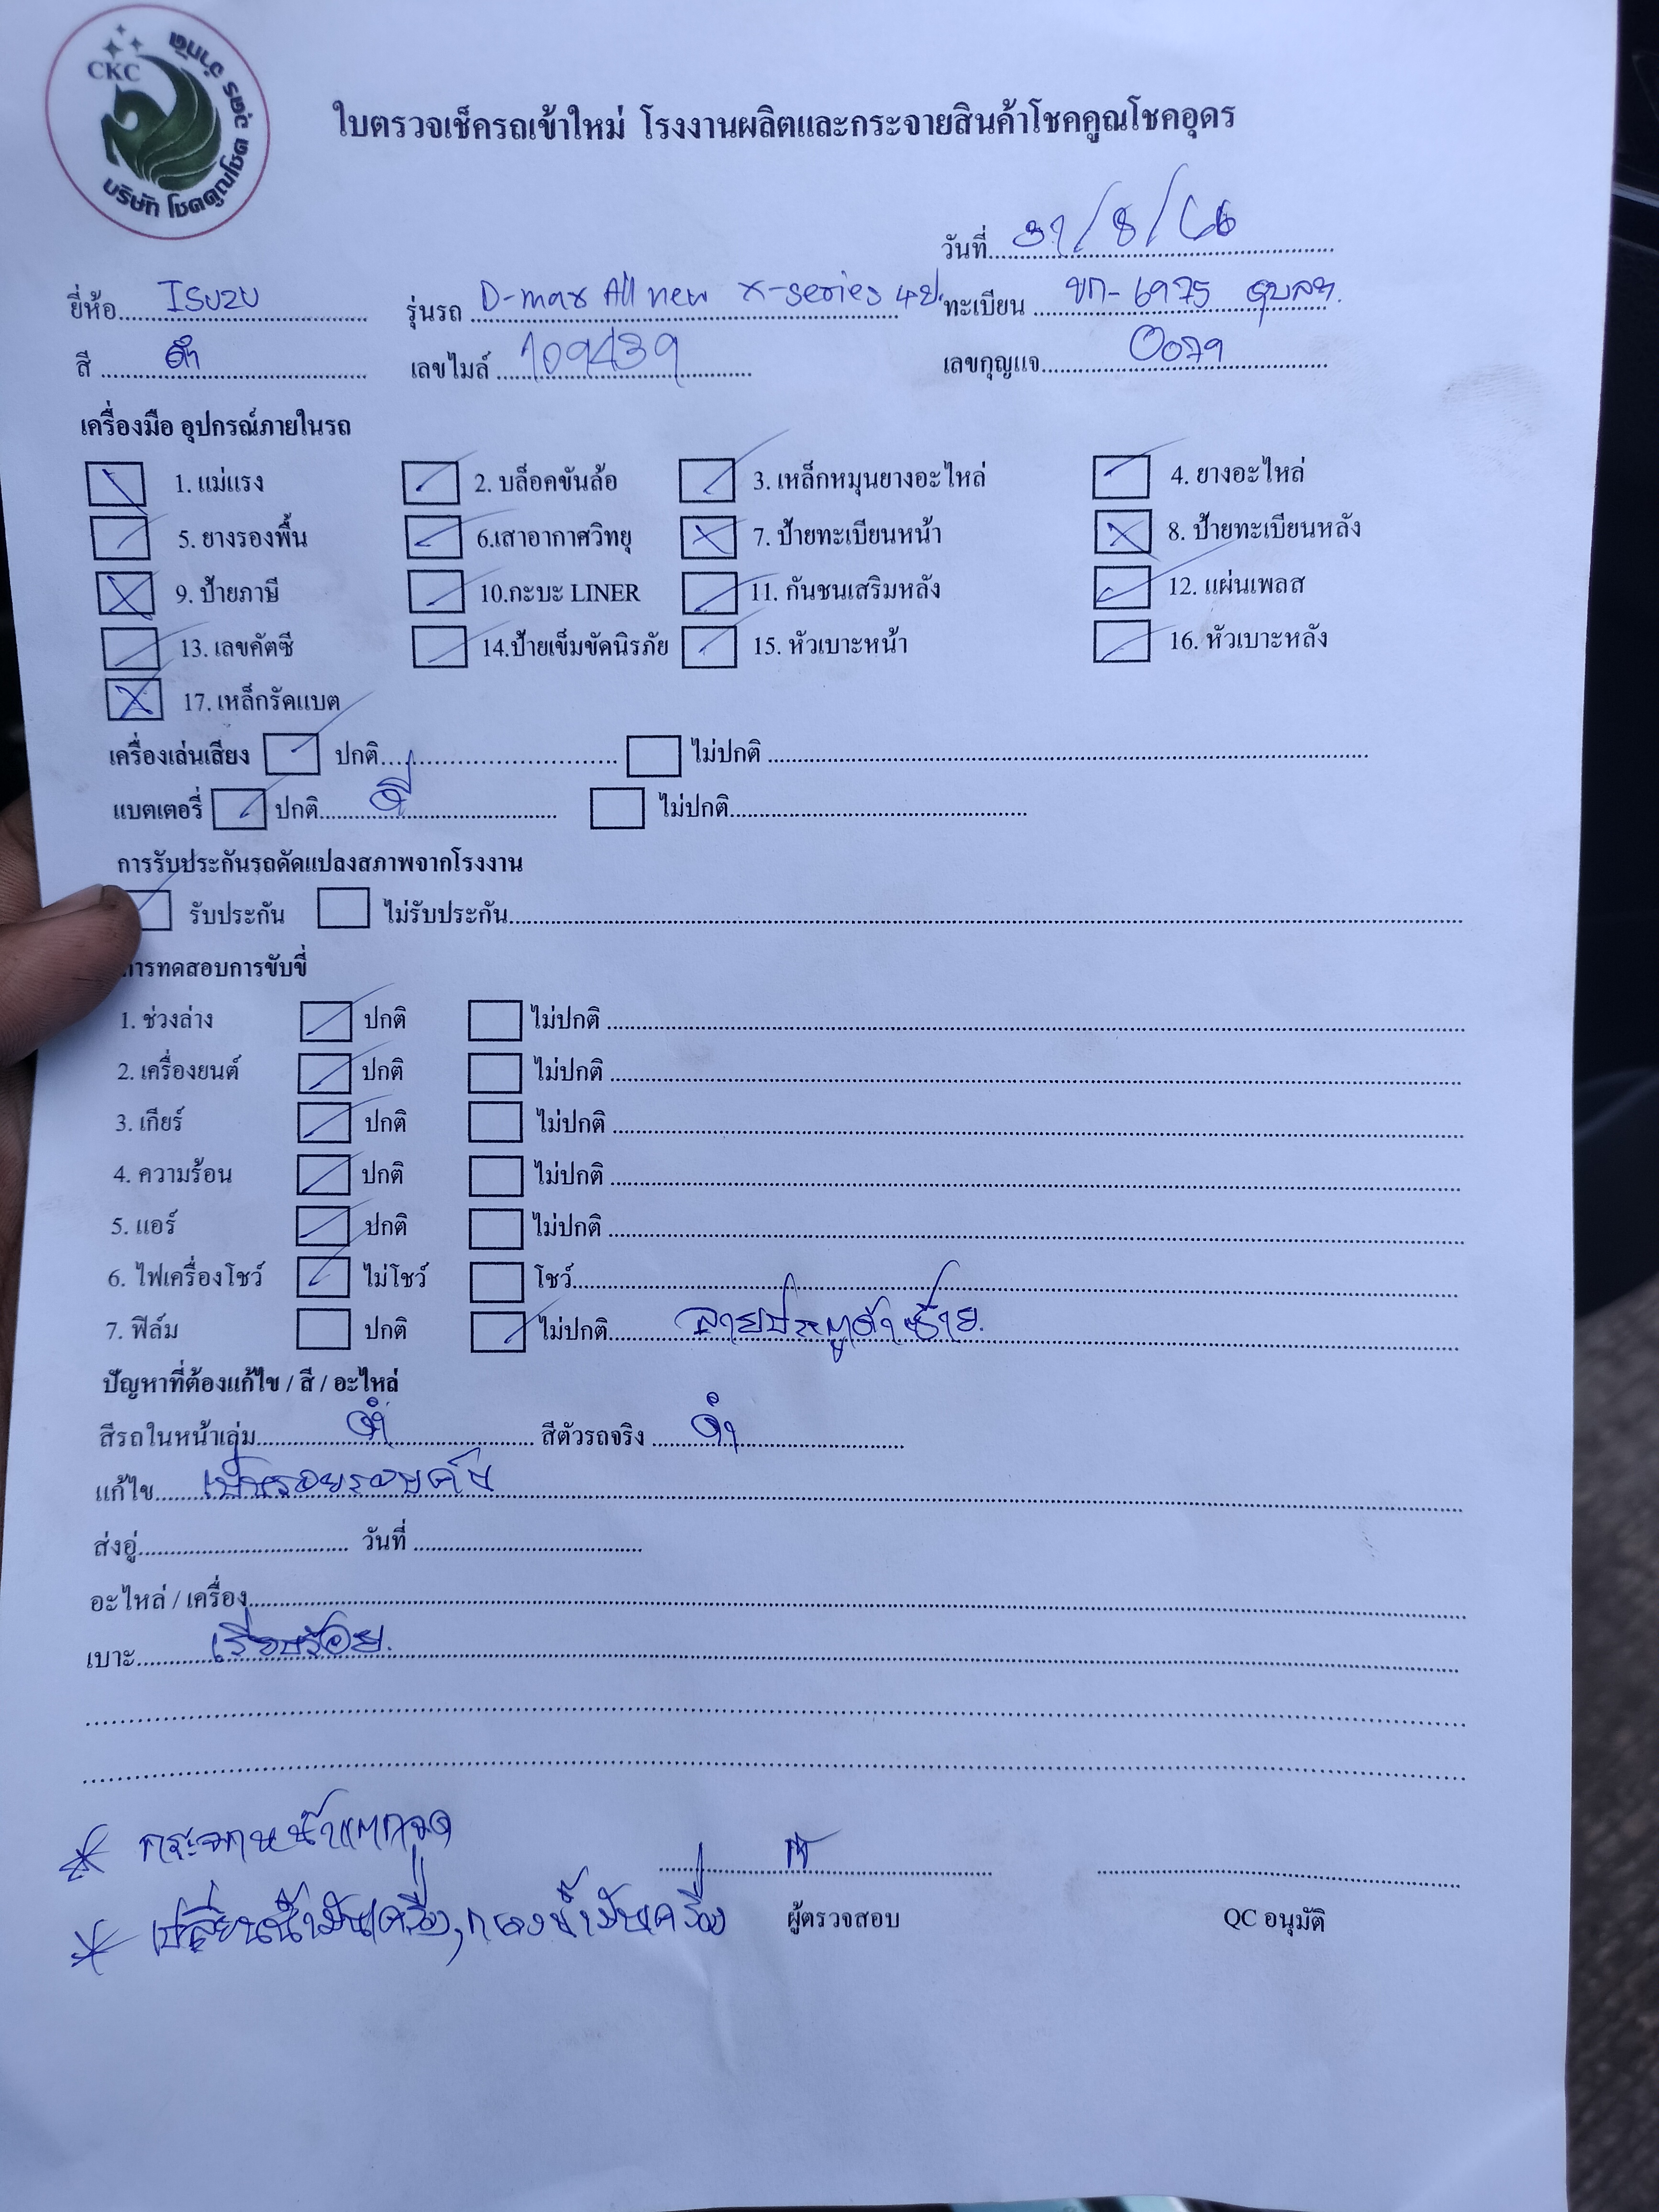 CKC
บริษัท โชคคูณโชค อุดร จำกัด
ใบตรวจเช็ครถเข้าใหม่ โรงงานผลิตและกระจายสินค้าโชคคูณโชคอุดร
วันที่ 31/8/66
ยี่ห้อ ISUZU รุ่นรถ D-max All new X-series 4ป. ทะเบียน ขก-6975 อุบลฯ.
สี ดำ เลขไมล์ 109439 เลขกุญแจ 0079
เครื่องมือ อุปกรณ์ภายในรถ
1. แม่แรง 2. บล็อคขันล้อ 3. เหล็กหมุนยางอะไหล่ 4. ยางอะไหล่
5. ยางรองพื้น 6.เสาอากาศวิทยุ 7. ป้ายทะเบียนหน้า 8. ป้ายทะเบียนหลัง
9. ป้ายภาษี 10.กะบะ LINER 11. กันชนเสริมหลัง 12. แผ่นเพลส
13. เลขคัตซี 14.ป้ายเข็มขัดนิรภัย 15. หัวเบาะหน้า 16. หัวเบาะหลัง
17. เหล็กรัดแบต
เครื่องเล่นเสียง ปกติ ไม่ปกติ
แบตเตอรี่ ปกติ ดี ไม่ปกติ
การรับประกันรถดัดแปลงสภาพจากโรงงาน
รับประกัน ไม่รับประกัน
การทดสอบการขับขี่
1. ช่วงล่าง ปกติ ไม่ปกติ
2. เครื่องยนต์ ปกติ ไม่ปกติ
3. เกียร์ ปกติ ไม่ปกติ
4. ความร้อน ปกติ ไม่ปกติ
5. แอร์ ปกติ ไม่ปกติ
6. ไฟเครื่องโชว์ ไม่โชว์ โชว์
7. ฟิล์ม ปกติ ไม่ปกติ ลายประตูหน้าซ้าย.
ปัญหาที่ต้องแก้ไข / สี / อะไหล่
สีรถในหน้าเล่ม ดำ สีตัวรถจริง ดำ
แก้ไข เป็นรอยรอบคัน
ส่งอู่ วันที่
อะไหล่ / เครื่อง
เบาะ เรียบร้อย.
* กระจกหน้าแตกจุด
* เปลี่ยนน้ำมันเครื่อง, กรองน้ำมันเครื่อง
ผู้ตรวจสอบ QC อนุมัติ